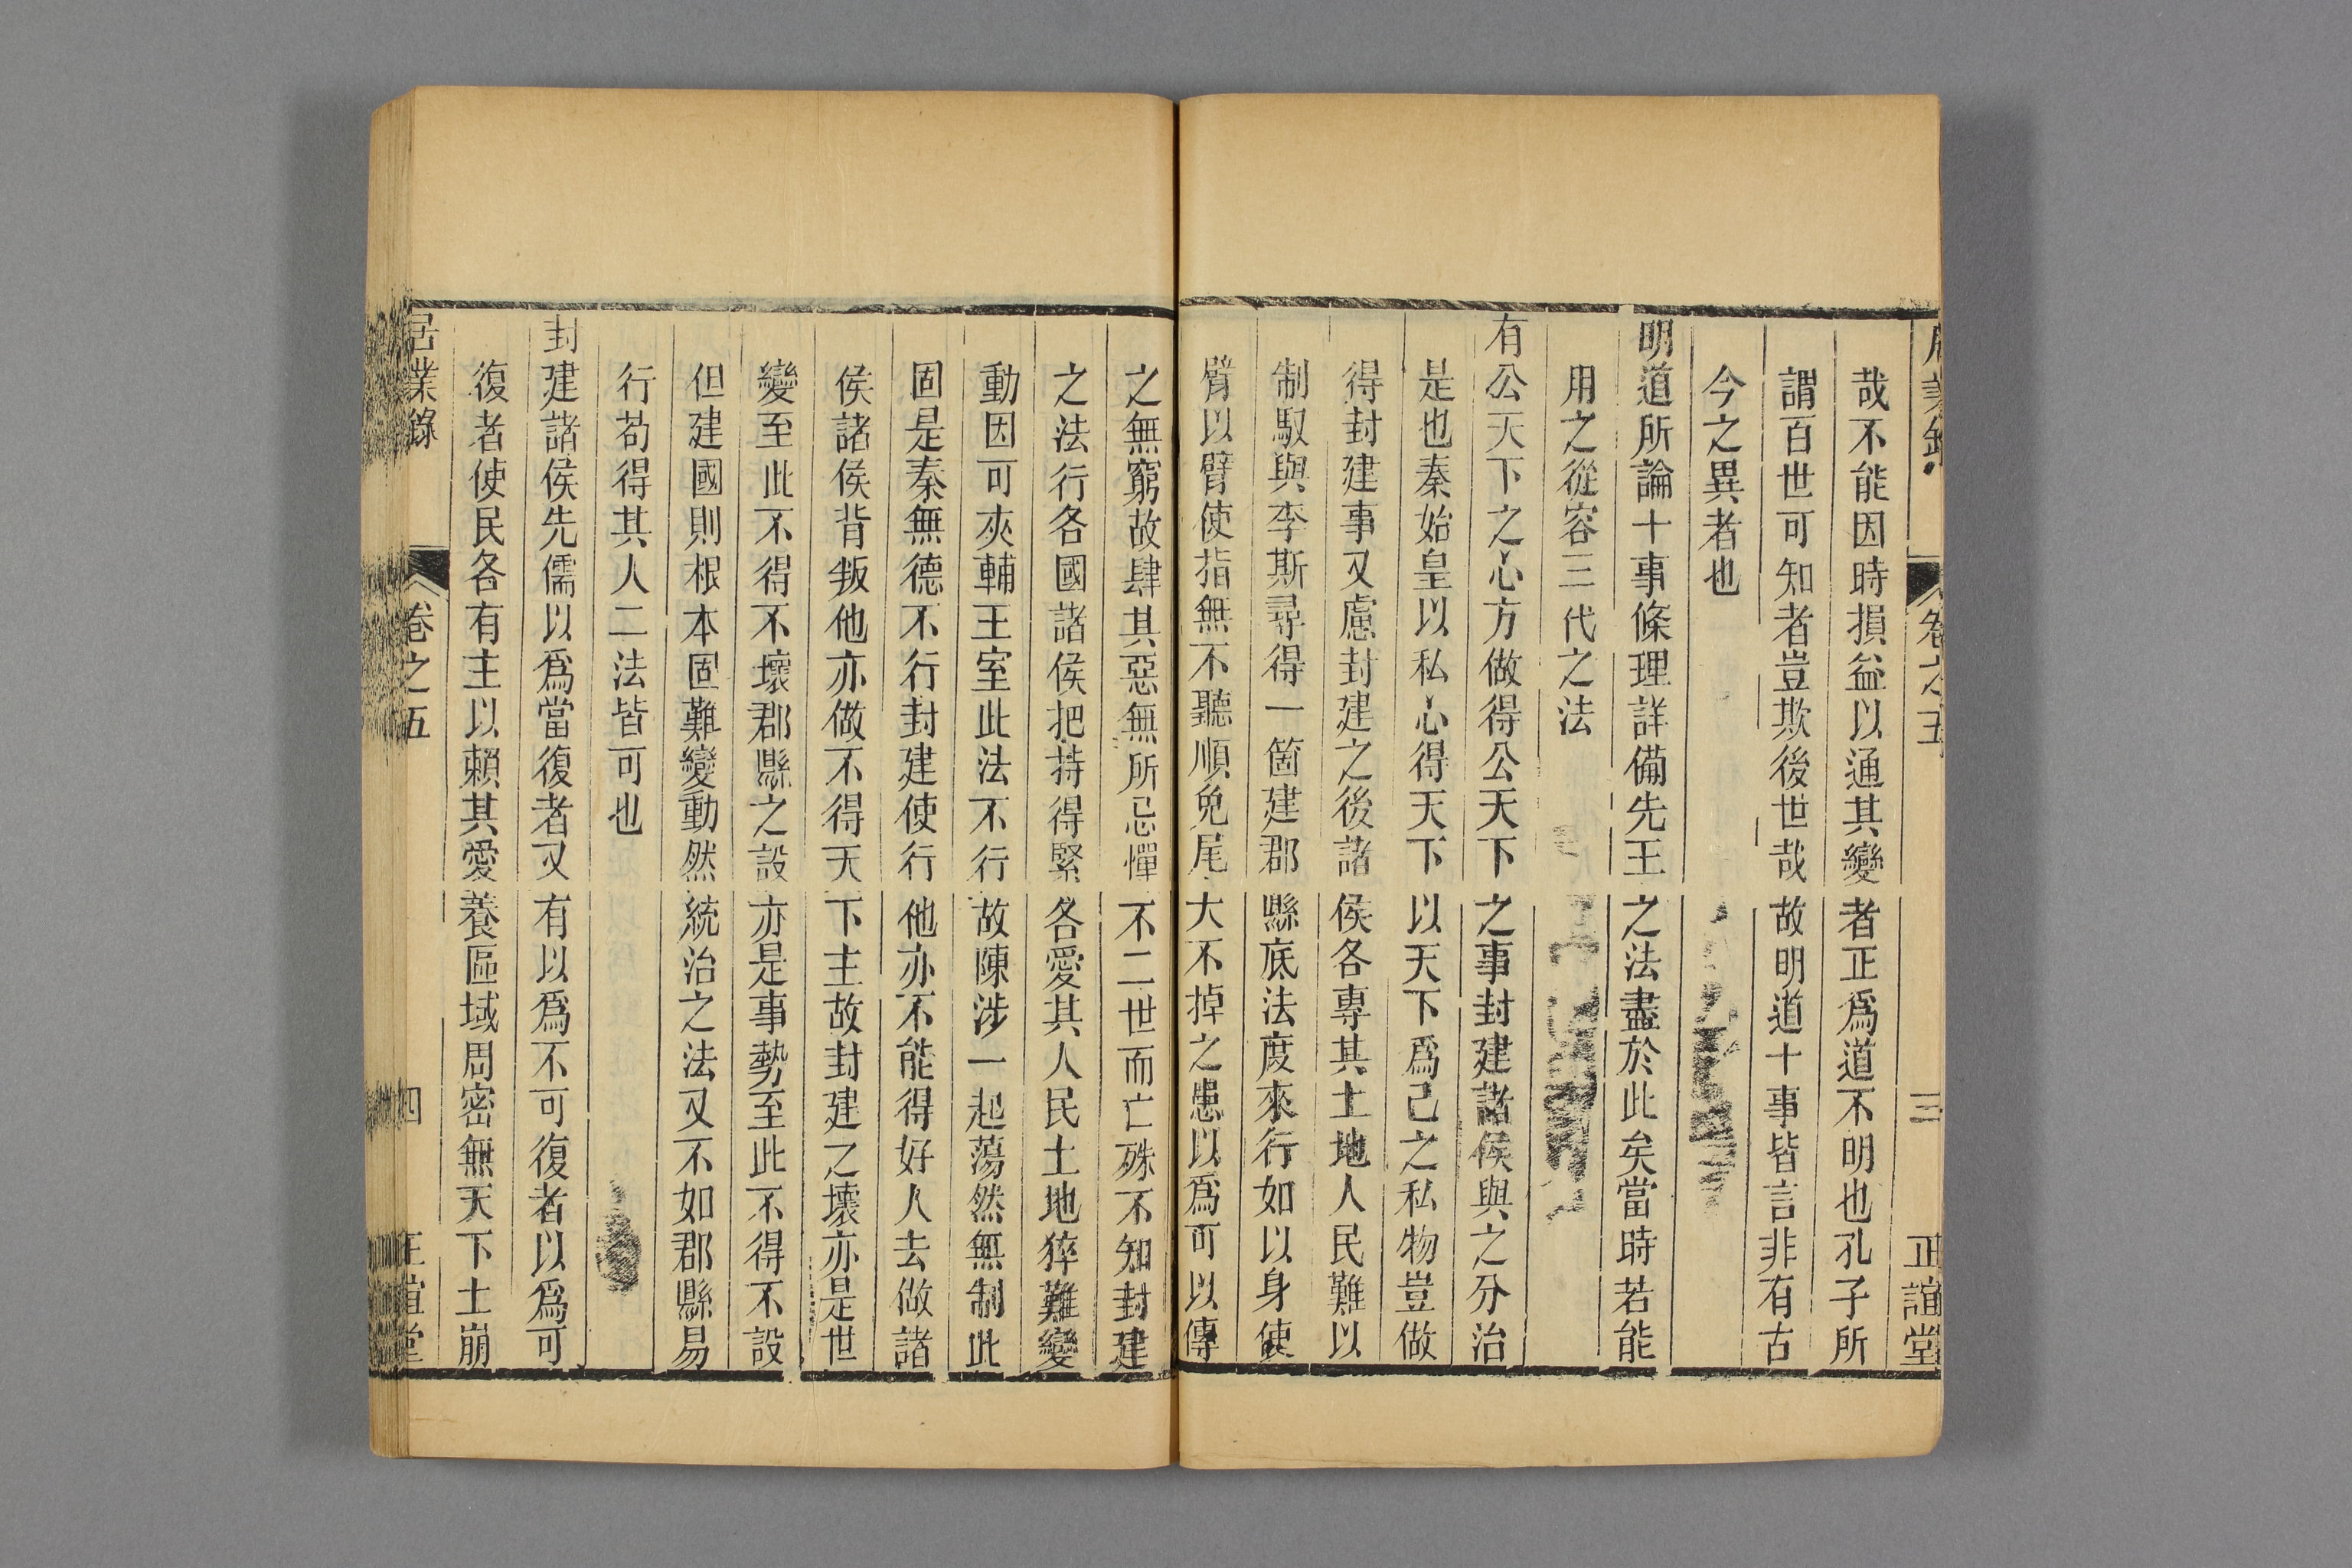 居業錄 卷之五 三 正誼堂
哉不能因時損益以通其變者正爲道不明也孔子所
謂百世可知者豈欺後世哉故明道十事皆言非有古
今之異者也
明道所論十事條理詳備先王之法盡於此矣當時若能
用之從容三代之法
有公天下之心方做得公天下之事封建諸侯與之分治
是也秦始皇以私心得天下以天下爲己之私物豈做
得封建事又慮封建之後諸侯各專其土地人民難以
制馭與李斯尋得一箇建郡縣底法度來行如以身使
臂以臂使指無不聽順免尾大不掉之患以爲可以傳
之無窮故肆其惡無所忌憚不二世而亡殊不知封建
之法行各國諸侯把持得緊各愛其人民土地猝難變
動因可夾輔王室此法不行故陳涉一起蕩然無制此
固是秦無德不行封建使行他亦不能得好人去做諸
侯諸侯背叛他亦做不得天下主故封建之壞亦是世
變至此不得不壞郡縣之設亦是事勢至此不得不設
但建國則根本固難變動然統治之法又不如郡縣易
行苟得其人二法皆可也
封建諸侯先儒以爲當復者又有以爲不可復者以爲可
復者使民各有主以賴其愛養區域周密無天下土崩
居業錄 卷之五 四 正誼堂